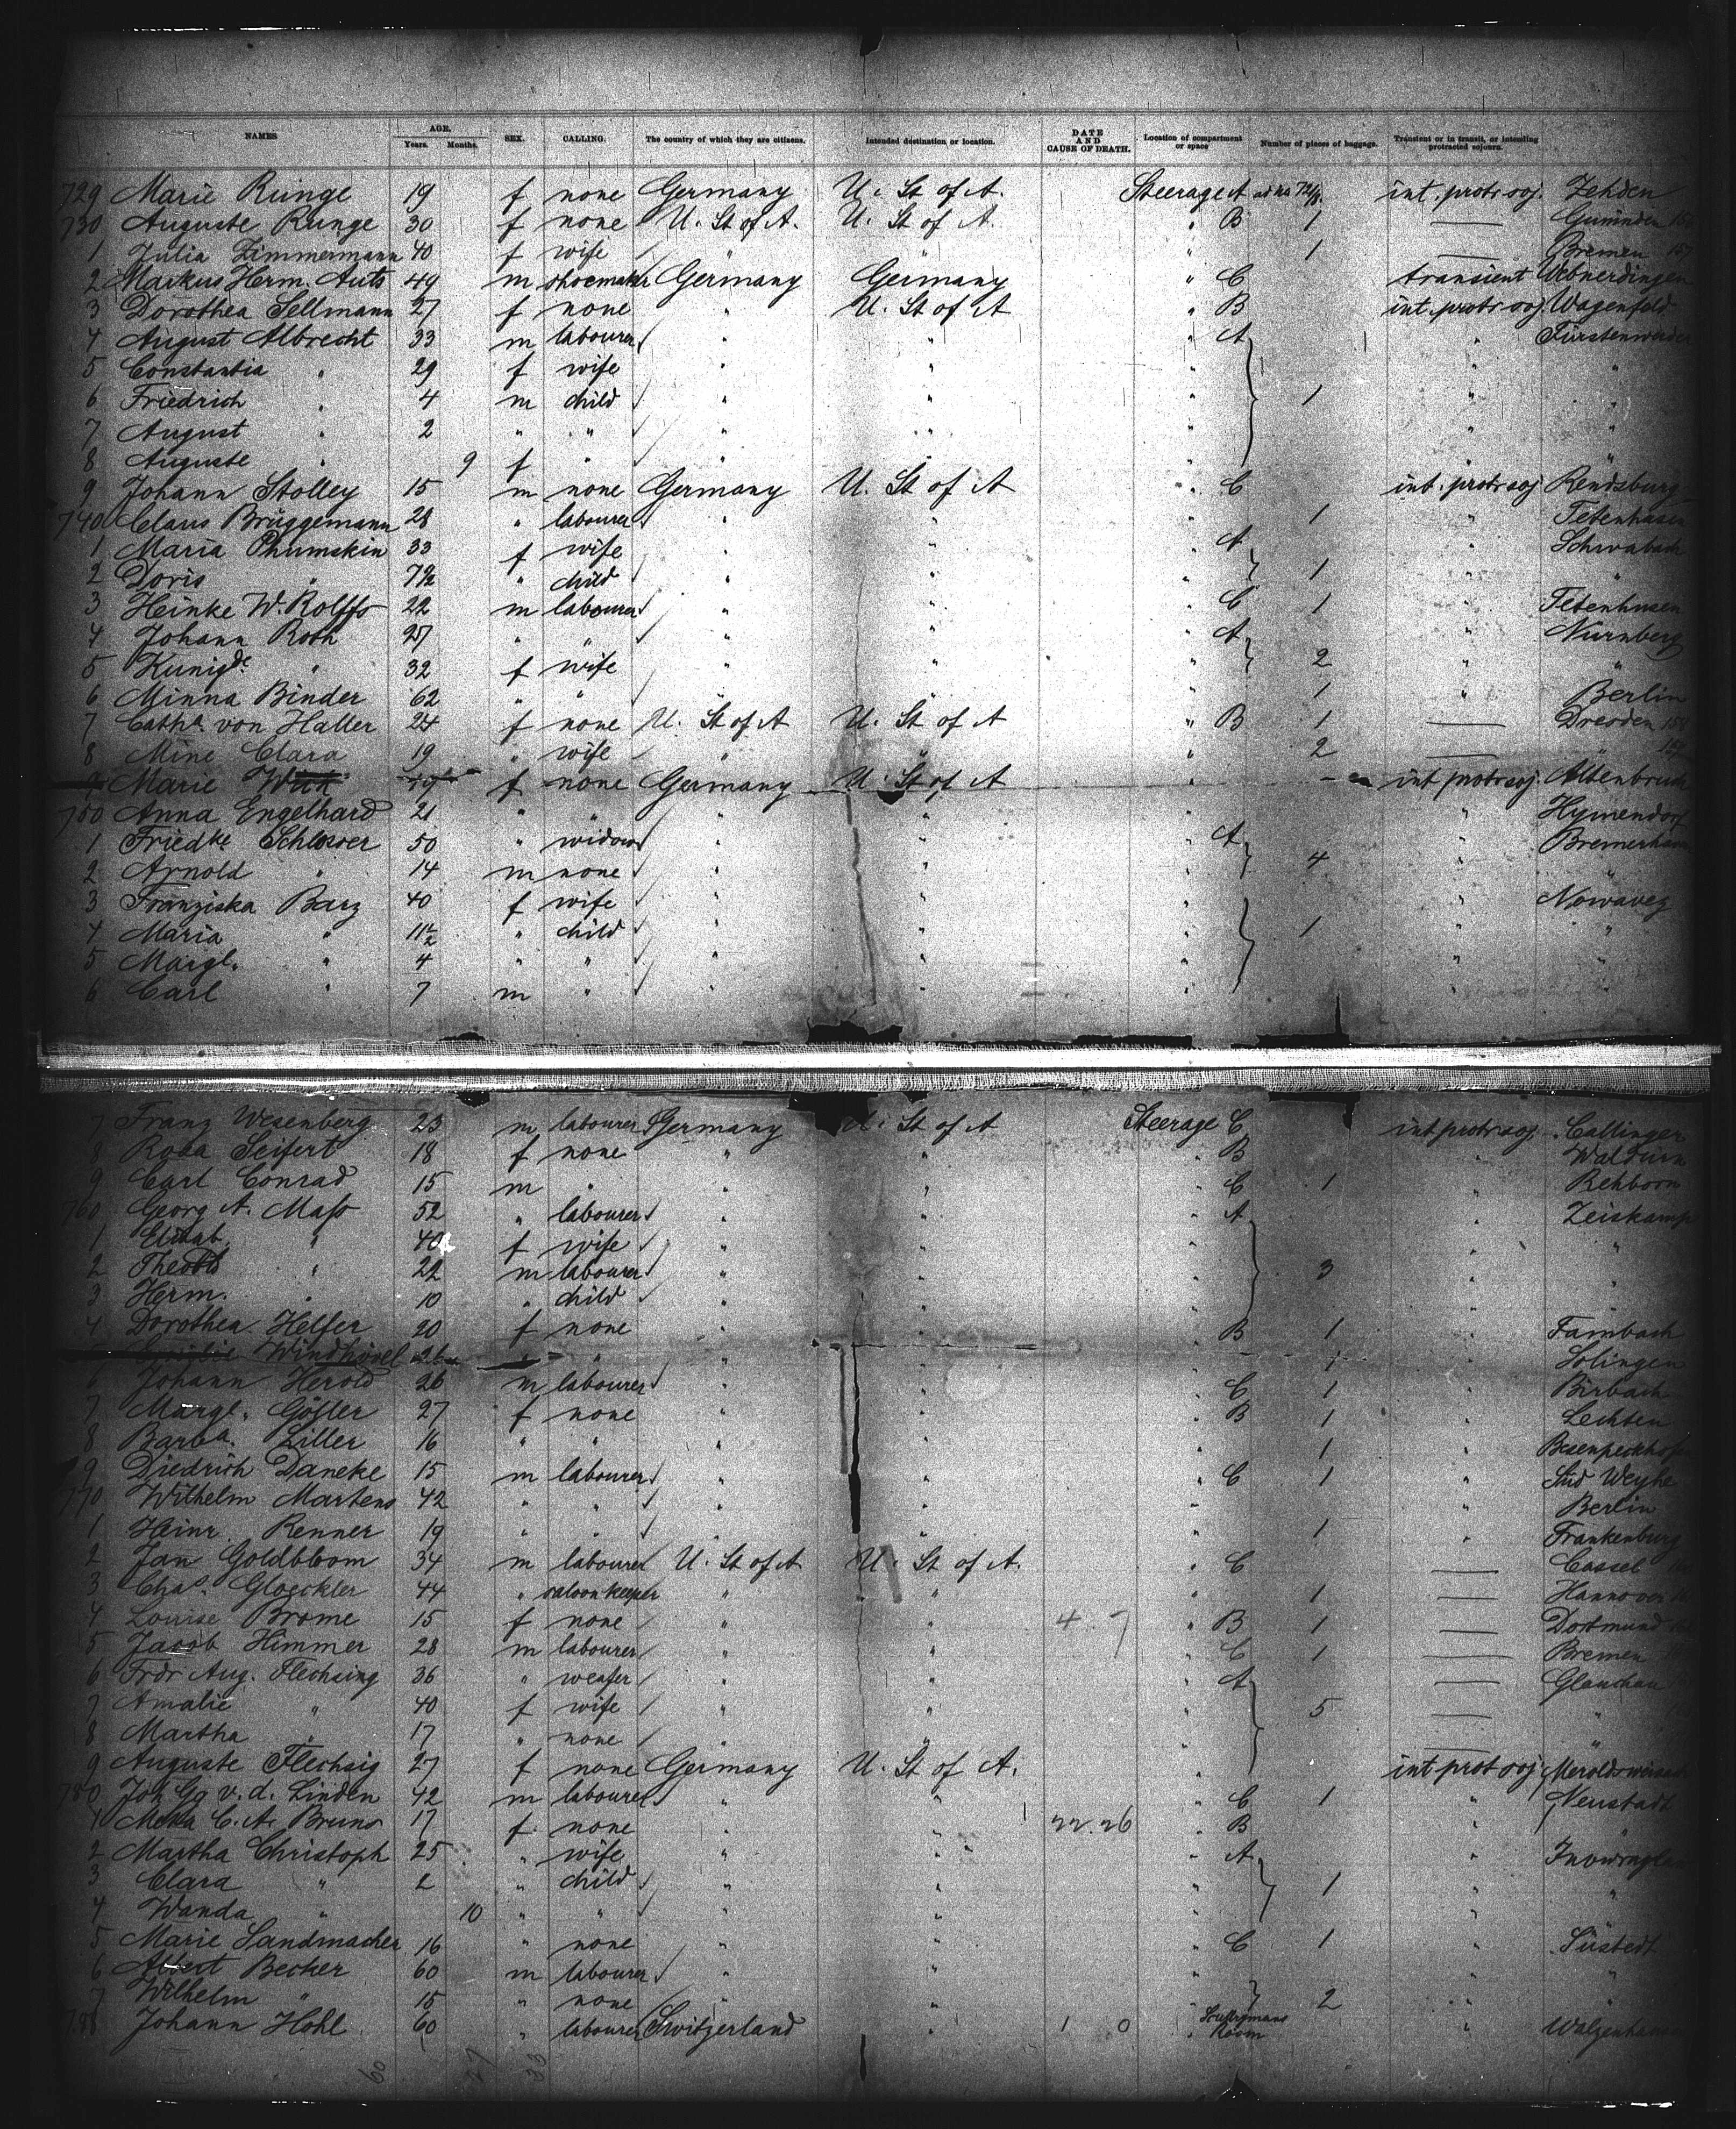 NAMES AGE. Years. Months. SEX. CALLING. The country of which they are citizens. Intended destination or location. DATE AND CAUSE OF DEATH. Location of compartment or space Number of pieces of baggage. Transient or in transit, or intending protracted sojourn.
729 Marie Runge 19 f none Germany U. St of A. Steerage A int. protr soj. Zehden
730 Auguste Runge 30 f none U. St of A. U. St of A. " B 1 —
1 Julia Zimmermann 40 f wife " " " 1 — Bremen
2 Markus Herm. Auts 49 m shoemaker Germany Germany " C transient
3 Dorothea Sellmann 27 f none " U. St of A " B int. protr soj. Wagenfeld
4 August Albrecht 33 m labourer " " " A " Fürstenwerder
5 Constantia " 29 f wife " " " " "
6 Friedrich " 4 m child " " " 1 " "
7 August " 2 " " " " " " "
8 Auguste " 9 f " " " " " "
9 Johann Stolley 15 m none Germany U. St of A " C int. protr soj Rendsburg
740 Claus Brüggemann 28 " labourer " " " 1 " Tetenhusen
1 Maria Phumskin 33 f wife " " " A " Schwabach
2 Doris " child " " " 1 " "
3 Heinke W. Rolffs 22 m labourer " " " C 1 " Tetenhusen
4 Johann Roth 27 " " " " " A " Nürnberg
5 Kunigde " 32 f wife " " " 2 " "
6 Minna Binder 62 " " " " " 1 " Berlin
7 Catha. von Haller 24 f none U. St of A U. St of A " B 1 — Dresden
8 Mine Clara 19 " wife " " " 2 — "
9 Marie 19 f none Germany U. St of A " - int protr soj. Altenbruch
750 Anna Engelhard 21 " " " " " " Hymendorf
1 Friedke Schlosser 50 " widow " " " A " Bremerhaven
2 Arnold " 14 m none " " " 4 " "
3 Franziska Barz 40 f wife " " " " Nowawez
4 Maria " 11½ " child " " " 1 " "
5 Margt. " 4 " " " " " " "
6 Carl " 7 m " " " " " "
7 Franz Wesenberg 23 m labourer Germany U. St of A Steerage C int protr soj.
8 Rosa Seifert 18 f none " " " B "
9 Carl Conrad 15 m " " " " C 1 " Rehborn
760 Georg A. Mass 52 " labourer " " " A " Zeiskamp
1 Elisab. " 40 f wife " " " " "
2 " 22 m labourer " " " 3 " "
3 Herm. " 10 " child " " " " "
4 Dorothea Helfer 20 f none " " " B 1 " Fambach
Windhövel 26 " " " " " 1 " Solingen
6 Johann Herold 26 m labourer " " " C 1 " Birbach
7 Margt. Gösler 27 f none " " " B 1 " Lechten
8 Barba. Ziller 16 " " " " " 1 "
9 Diedrich Daneke 15 m labourer " " " C 1 " Süd Weyhe
770 Wilhelm Martens 42 " " " " " " Berlin
1 Heinr. Renner 19 " " " " " 1 " Frankenburg
2 Jan Goldbloom 34 m labourer U. St of A U. St of A. " C — Cassel
3 Chas. Gloeckler 44 " saloonkeeper " " " 1 — Hannover
4 Louise Brome 15 f none " " 4 7 " B 1 — Dortmund
5 Jacob Himmer 28 m labourer " " " C 1 — Bremen
6 Frdr Aug. Flechsing 36 " weafer " " " A — Glauchau
7 Amalie " 40 f wife " " " 5 — "
8 Martha " 17 " none " " " — "
9 Auguste Flechsig 27 f none Germany U. St of A. " int prot soj
780 Joh Gg v. d. Linden 42 m labourer " " " C 1 " Neustadt
1 Meta C. A. Bruns 17 f. none " " 22.26 " B " "
2 Martha Christoph 25 " wife " " " A "
3 Clara " 2 " child " " " 1 " "
4 Wanda " 10 " " " " " " "
5 Marie Sandmacher 16 " none " " " C 1 " Süstedt
6 Albert Becker 60 m labourer " " " " "
7 Wilhelm " 15 " none " " " 2 " "
788 Johann Hohl 60 " labourer Switzerland " 1 0 " Room " Walzenhausen